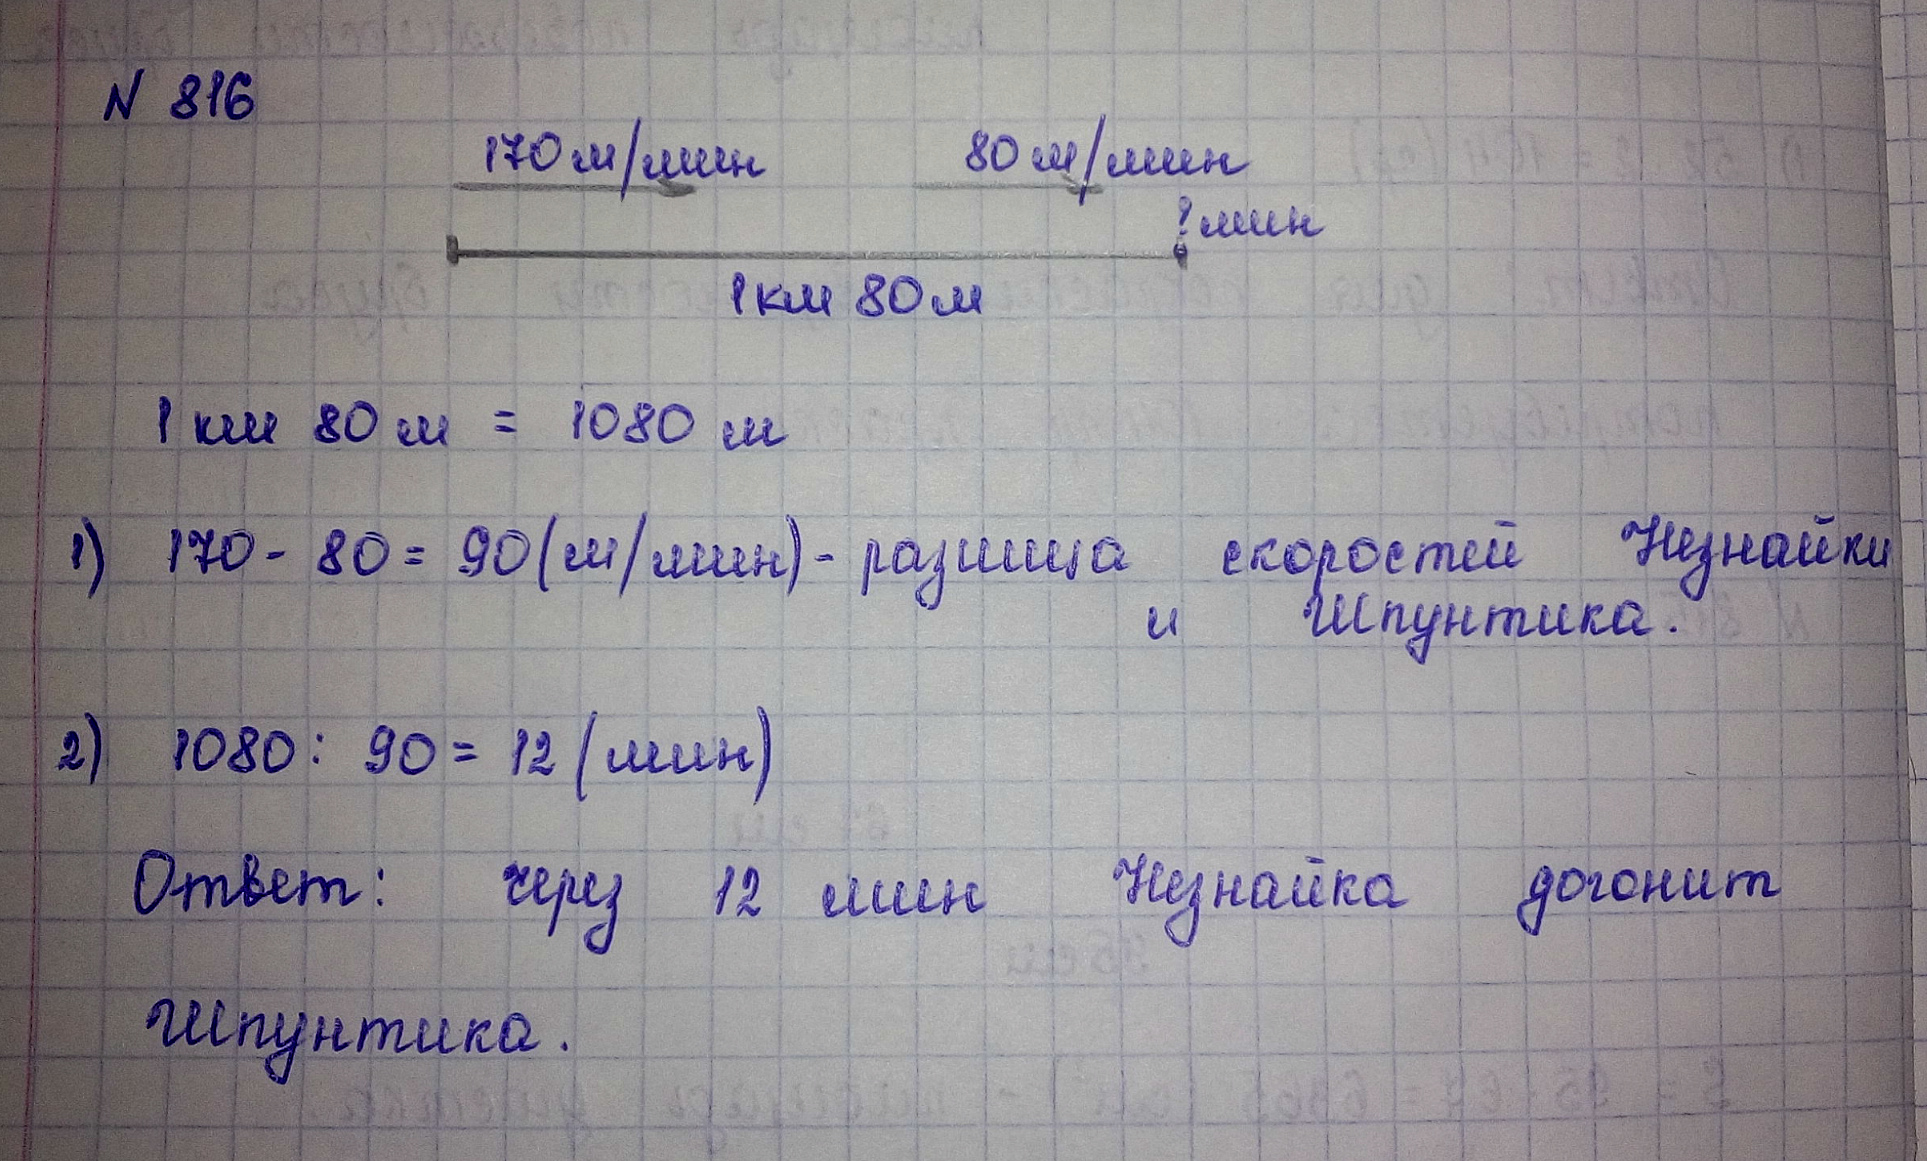 N 816
170 м/мин 80 м/мин
? мин
1 км 80 м
1 км 80 м = 1080 м
1) 170 - 80 = 90 (м/мин) - разница скоростей Незнайки
и Шпунтика.
2) 1080 : 90 = 12 (мин)
Ответ: через 12 мин Незнайка догонит
Шпунтика.